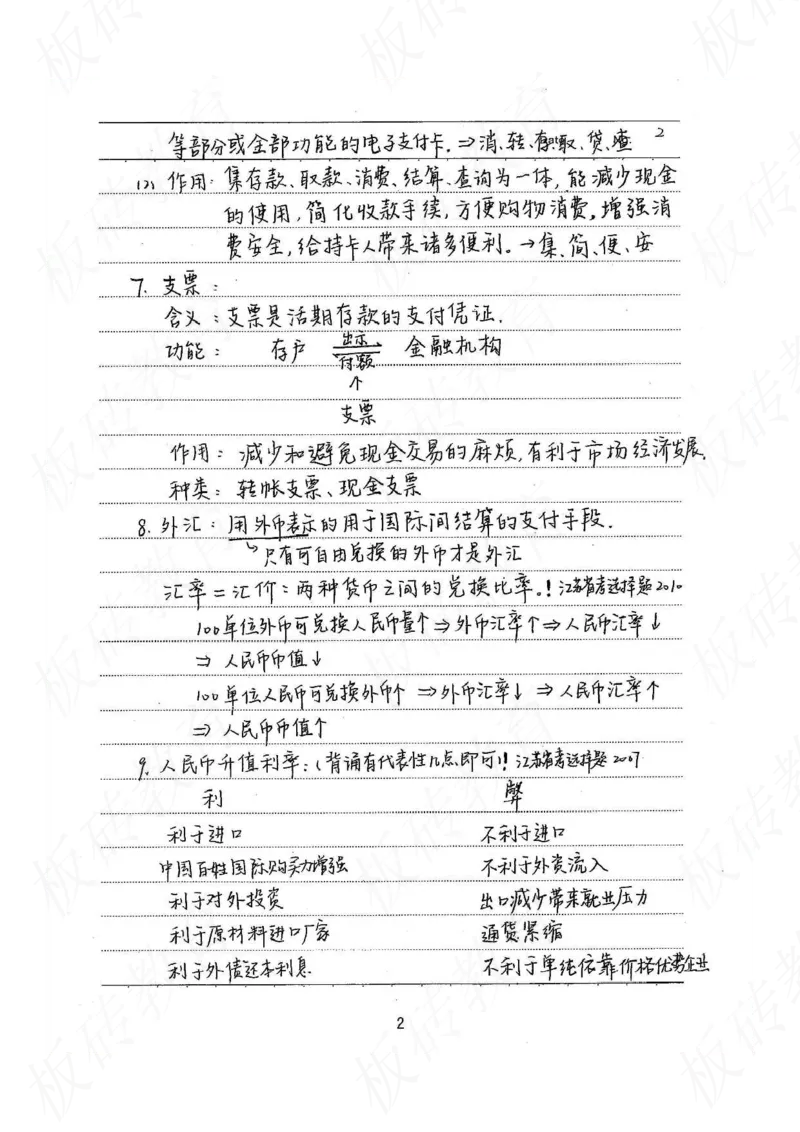 2
等部分或全部功能的电子支付卡.⇒消、转、存取、贷、查
(2) 作用: 集存款、取款、消费、结算、查询为一体,能减少现金
的使用,简化收款手续,方便购物消费。增强消
费安全,给持卡人带来诸多便利。→集、简、便、安
7. 支票:
含义:支票是活期存款的支付凭证.
功能: 存户 出示 金融机构
付额
↑
支票
作用: 减少和避免现金交易的麻烦,有利于市场经济发展.
种类: 转帐支票、现金支票
8. 外汇: 用外币表示的用于国际间结算的支付手段.
↳只有可自由兑换的外币才是外汇
汇率=汇价:两种货币之间的兑换比率。! 江苏省考选择题2010
100单位外币可兑换人民币量↑⇒外币汇率↑⇒人民币汇率↓
⇒ 人民币币值↓
100单位人民币可兑换外币↑ ⇒外币汇率↓ ⇒人民币汇率↑
⇒ 人民币币值↑
9. 人民币升值利率:(背诵有代表性几点即可)! 江苏省考选择题2007
利 弊
利于进口 不利于进口
中国百姓国际购买力增强 不利于外资流入
利于对外投资 出口减少带来就业压力
利于原材料进口厂家 通货紧缩
利于外债还本利息 不利于单纯依靠价格优势企业
2
板砖教育